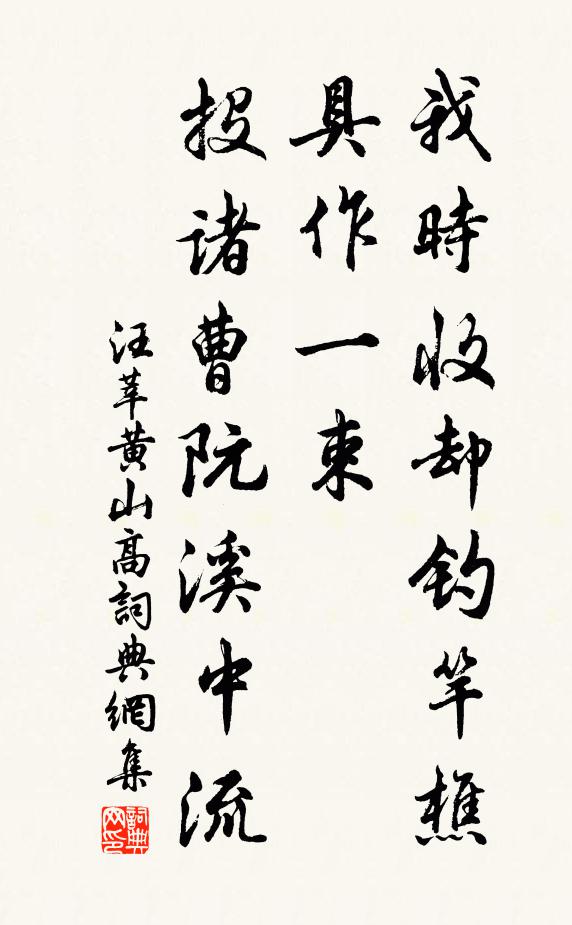 我時收却釣竿樵
具作一束
投諸曹阮溪中流
汪莘黄山高詞典網集
詞典网印